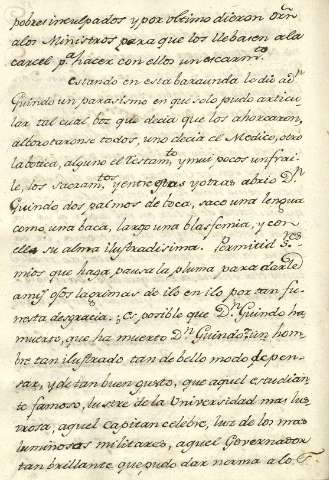 pobres inculpados y por ultimo dieron orñ
a los Ministros para que los llebasen a la
carcel pa hacer con ellos un escarmto
estando en esta baraunda le dio a Dn
Guindo un parasismo en que solo pudo articu
lar tal cual voz que decia que los ahorcaron,
alborotaronse todos, uno decia el Medico, otro
la botica, alguno el Testamto y mui pocos un frai
le, los sacramtos y entre estas y otras abrio Dn
Guindo dos palmos de boca, saco una lengua
como una baca, largo una blasfemia, y con
ella su alma ilustradisima. Permitid Sres
mios que haga pausa la pluma para darle
a mis ojos lagrimas de ilo en ilo por tan fu
nesta desgracia. Es posible que Dn Guindo ha
muerto, que ha muerto Dn Guindo? un hom
bre tan ilustrado tan de bello modo de pen
sar, y de tan buen gusto, que aquel estudian
te famoso, lustre de la Universidad mas lus
trosa, aquel Capitan celebre, luz de los mas
luminosos militares, aquel Governador
tan brillante que pudo dar norma a lo